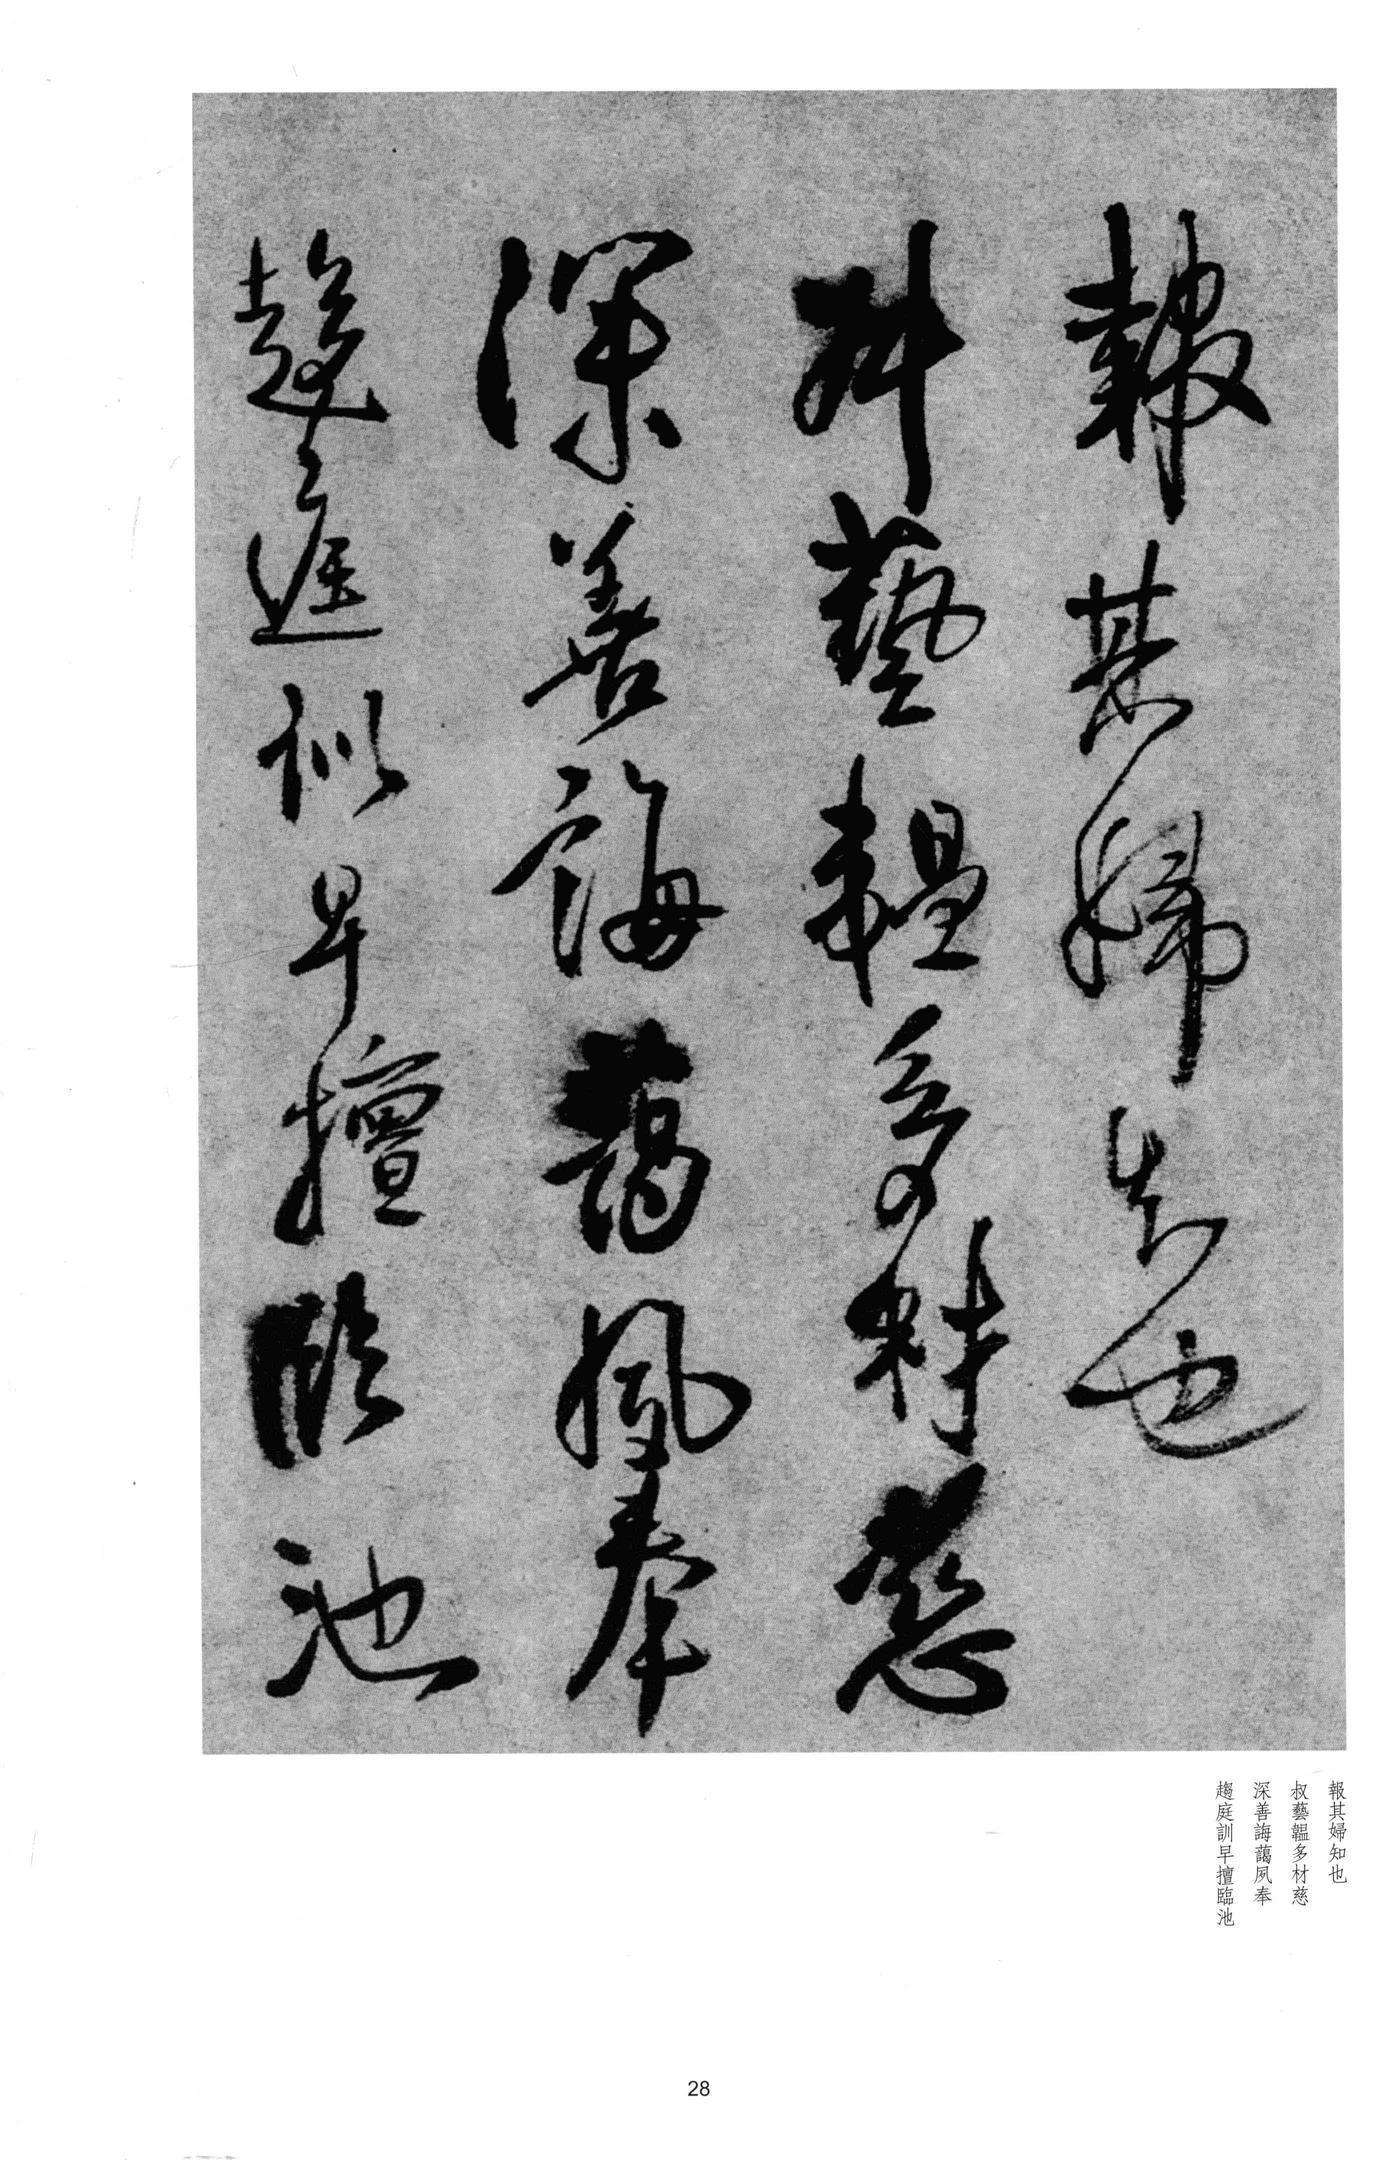 報其婦知也
叔藝韞多材慈
深善誨藹夙奉
趨庭訓早擅臨池
報其婦知也
叔藝韞多材慈
深善誨藹夙奉
趨庭訓早擅臨池
28